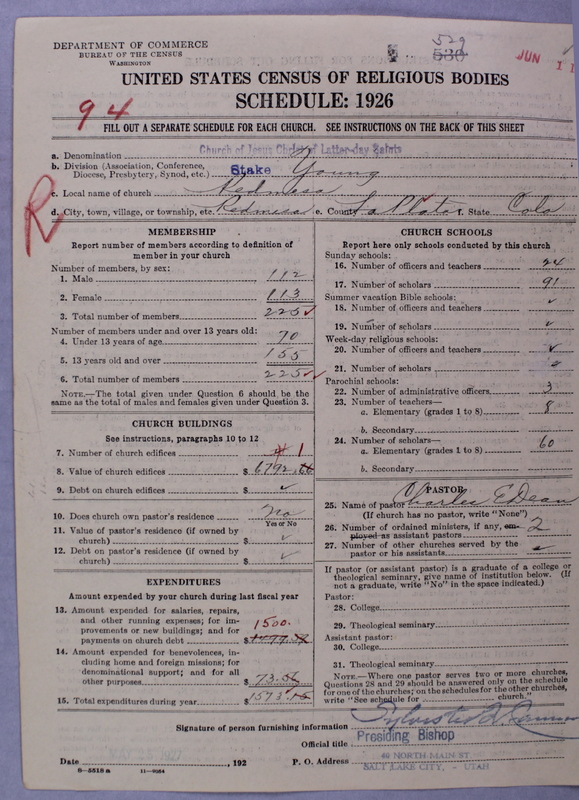 DEPARTMENT OF COMMERCE
BUREAU OF THE CENSUS
WASHINGTON
529
530
JUN 1 1
UNITED STATES CENSUS OF RELIGIOUS BODIES
SCHEDULE: 1926
94
FILL OUT A SEPARATE SCHEDULE FOR EACH CHURCH. SEE INSTRUCTIONS ON THE BACK OF THIS SHEET
a. Denomination Church of Jesus Christ of Latter-day Saints
b. Division (Association, Conference, Diocese, Presbytery, Synod, etc.) Stake Young
c. Local name of church Redmesa
d. City, town, village, or township, etc. Redmesa e. County La Plata f. State Colo
R
MEMBERSHIP
Report number of members according to definition of
member in your church
Number of members, by sex:
1. Male 112
2. Female 113
3. Total number of members 225
Number of members under and over 13 years old:
4. Under 13 years of age 70
5. 13 years old and over 155
6. Total number of members 225
NOTE.—The total given under Question 6 should be the
same as the total of males and females given under Question 3.
CHURCH BUILDINGS
See instructions, paragraphs 10 to 12
7. Number of church edifices 1
8. Value of church edifices $ 6792.
9. Debt on church edifices $ ✓
10. Does church own pastor's residence No
Yes or No
11. Value of pastor's residence (if owned by
church) $ ✓
12. Debt on pastor's residence (if owned by
church) $ ✓
EXPENDITURES
Amount expended by your church during last fiscal year
13. Amount expended for salaries, repairs,
and other running expenses; for im-
provements or new buildings; and for
payments on church debt $ 1500.
14. Amount expended for benevolences, in-
cluding home and foreign missions; for
denominational support; and for all
other purposes $ 73.
15. Total expenditures during year $ 1573
CHURCH SCHOOLS
Report here only schools conducted by this church
Sunday schools:
16. Number of officers and teachers 24
17. Number of scholars 91
Summer vacation Bible schools:
18. Number of officers and teachers ✓
19. Number of scholars ✓
Week-day religious schools:
20. Number of officers and teachers ✓
21. Number of scholars
Parochial schools:
22. Number of administrative officers 3
23. Number of teachers—
a. Elementary (grades 1 to 8) 8
b. Secondary
24. Number of scholars—
a. Elementary (grades 1 to 8) 60
b. Secondary
PASTOR
25. Name of pastor Charles E. Dean
(If church has no pastor, write "None")
26. Number of ordained ministers, if any, em-
ployed as assistant pastors 2
27. Number of other churches served by the
pastor or his assistants
If pastor (or assistant pastor) is a graduate of a college or
theological seminary, give name of institution below. (If
not a graduate, write "No" in the space indicated.)
Pastor:
28. College
29. Theological seminary
Assistant pastor:
30. College
31. Theological seminary
NOTE.—Where one pastor serves two or more churches,
Questions 28 and 29 should be answered only on the schedule
for one of the churches; on the schedules for the other churches,
write "See schedule for church."
Signature of person furnishing information Sylvester Q. Cannon
Official title Presiding Bishop
Date , 192 P. O. Address 40 NORTH MAIN ST
SALT LAKE CITY, - UTAH
8—5518a 11—9064